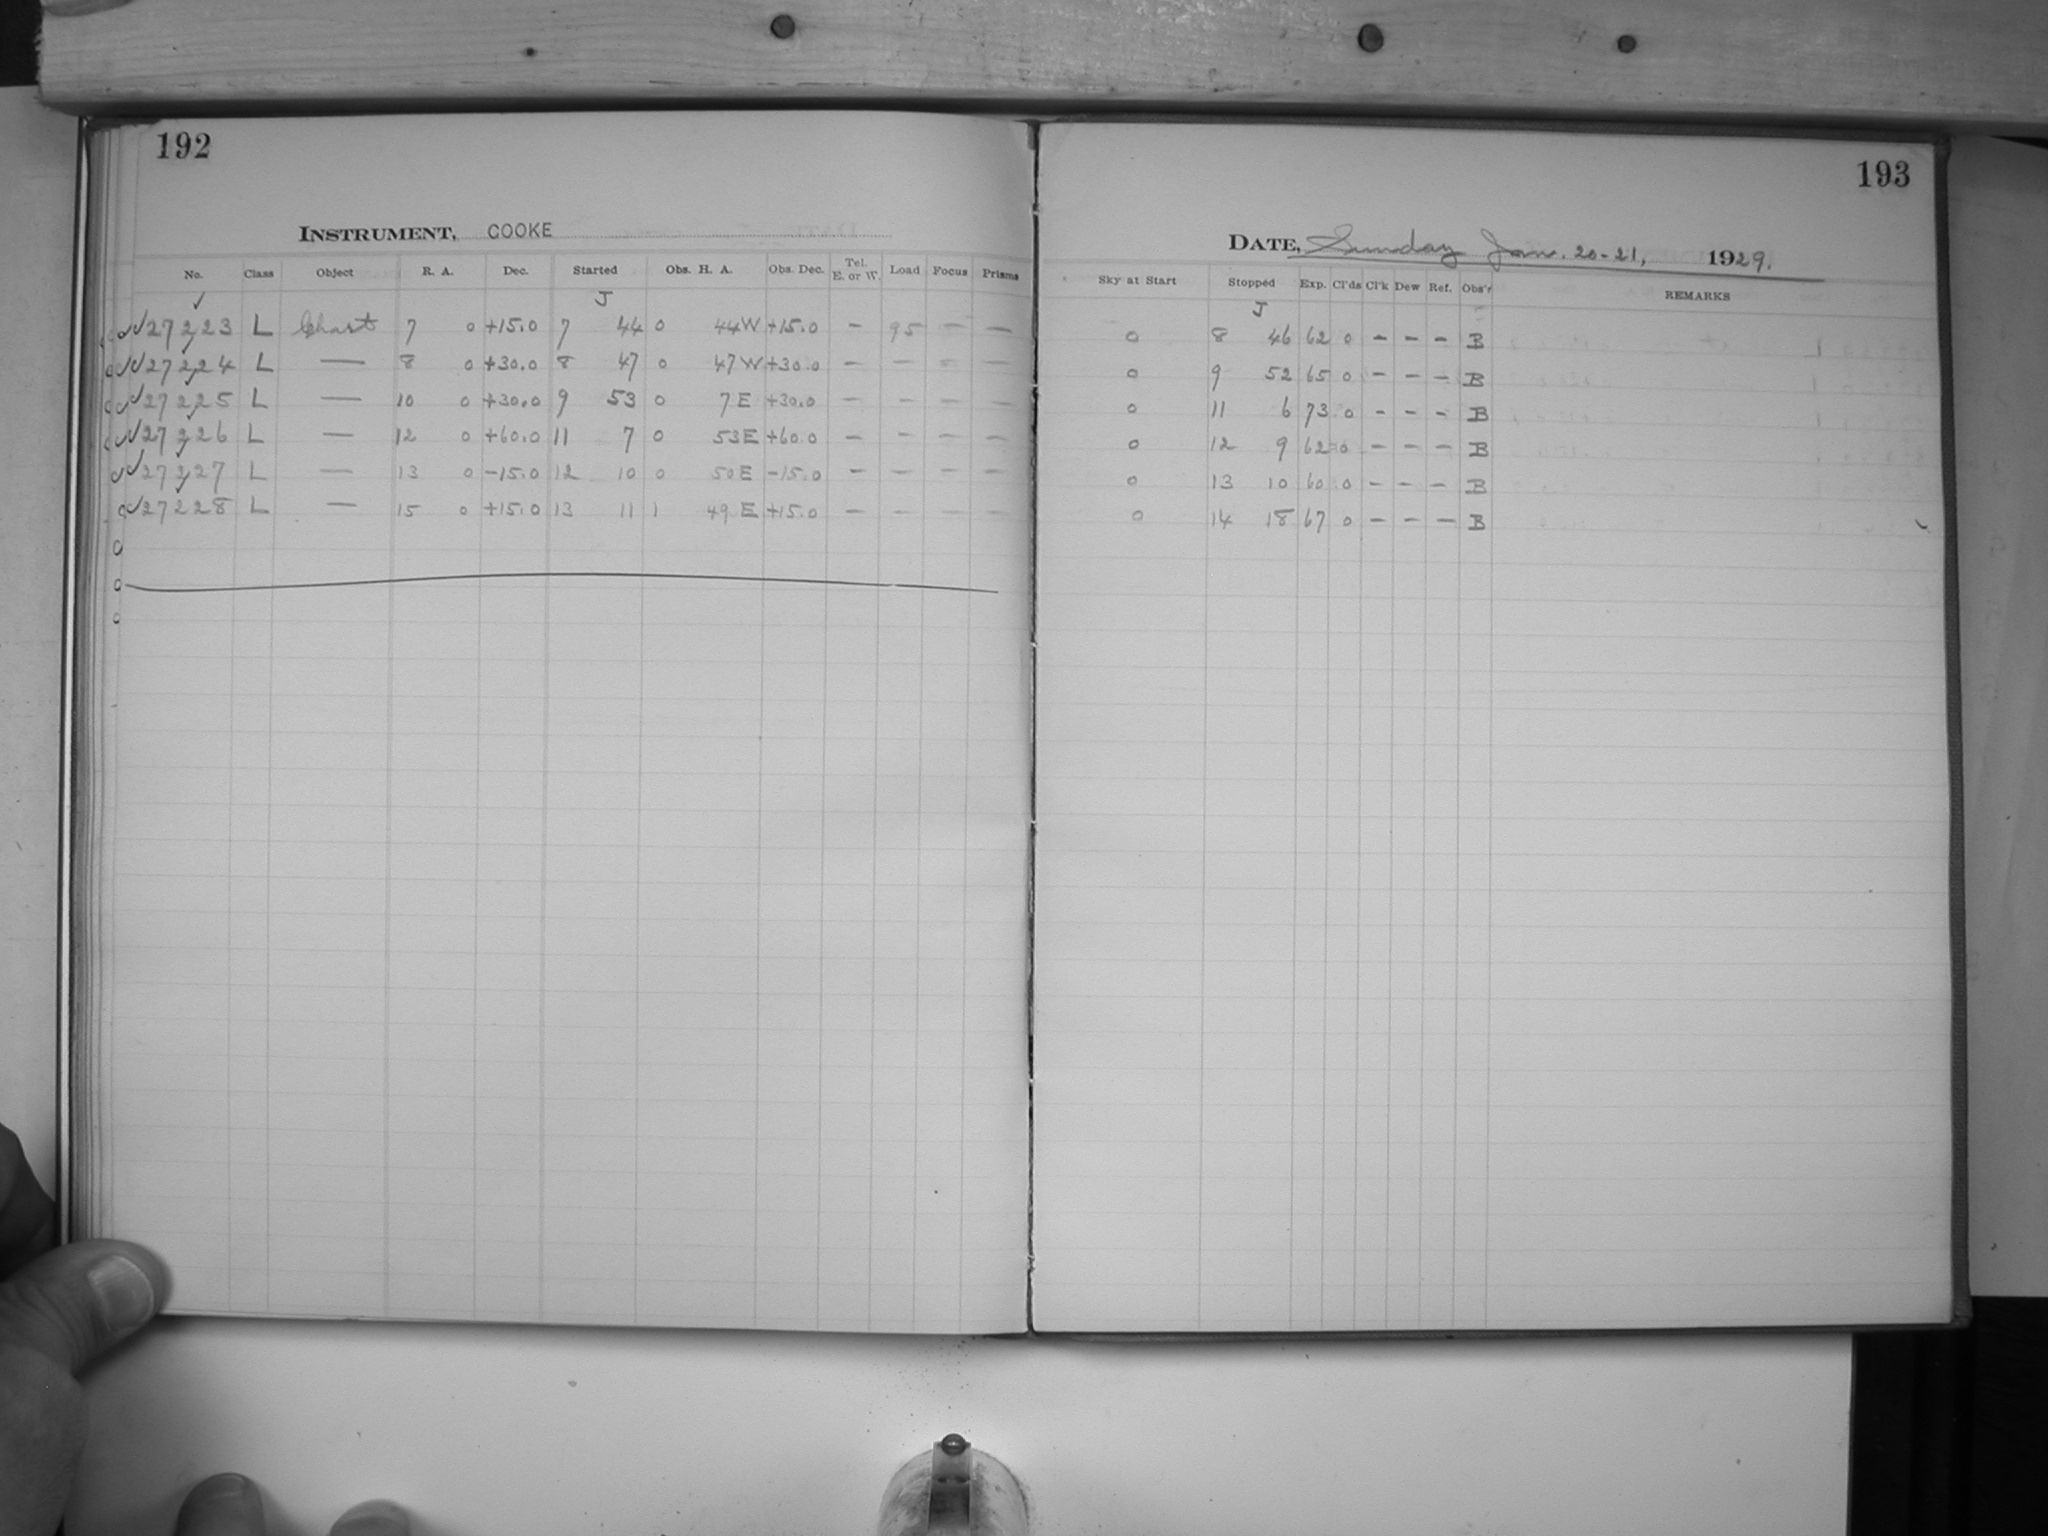 192
INSTRUMENT, COOKE
No. Class Object R. A. Dec. Started Obs. H. A. Obs. Dec. Tel. E. or W. Load Focus Prisms
✓ J
27223 L Chart 7 0 +15.0 7 44 0 44W +15.0 - 95 - -
27224 L — 8 0 +30.0 8 47 0 47W +30.0 - - - -
27225 L — 10 0 +30.0 9 53 0 7E +30.0 - - - -
27226 L — 12 0 +60.0 11 7 0 53E +60.0 - - - -
27227 L — 13 0 -15.0 12 10 0 50E -15.0 - - - -
27228 L — 15 0 +15.0 13 11 1 49E +15.0 - - - -
193
DATE, Sunday Jan. 20-21, 1929.
Sky at Start Stopped Exp. Cl'ds Cl'k Dew Ref. Obs'r REMARKS
J
0 8 46 62 0 - - - B
0 9 52 65 0 - - - B
0 11 6 73 0 - - - B
0 12 9 62 0 - - - B
0 13 10 60 0 - - - B
0 14 18 67 0 - - - B